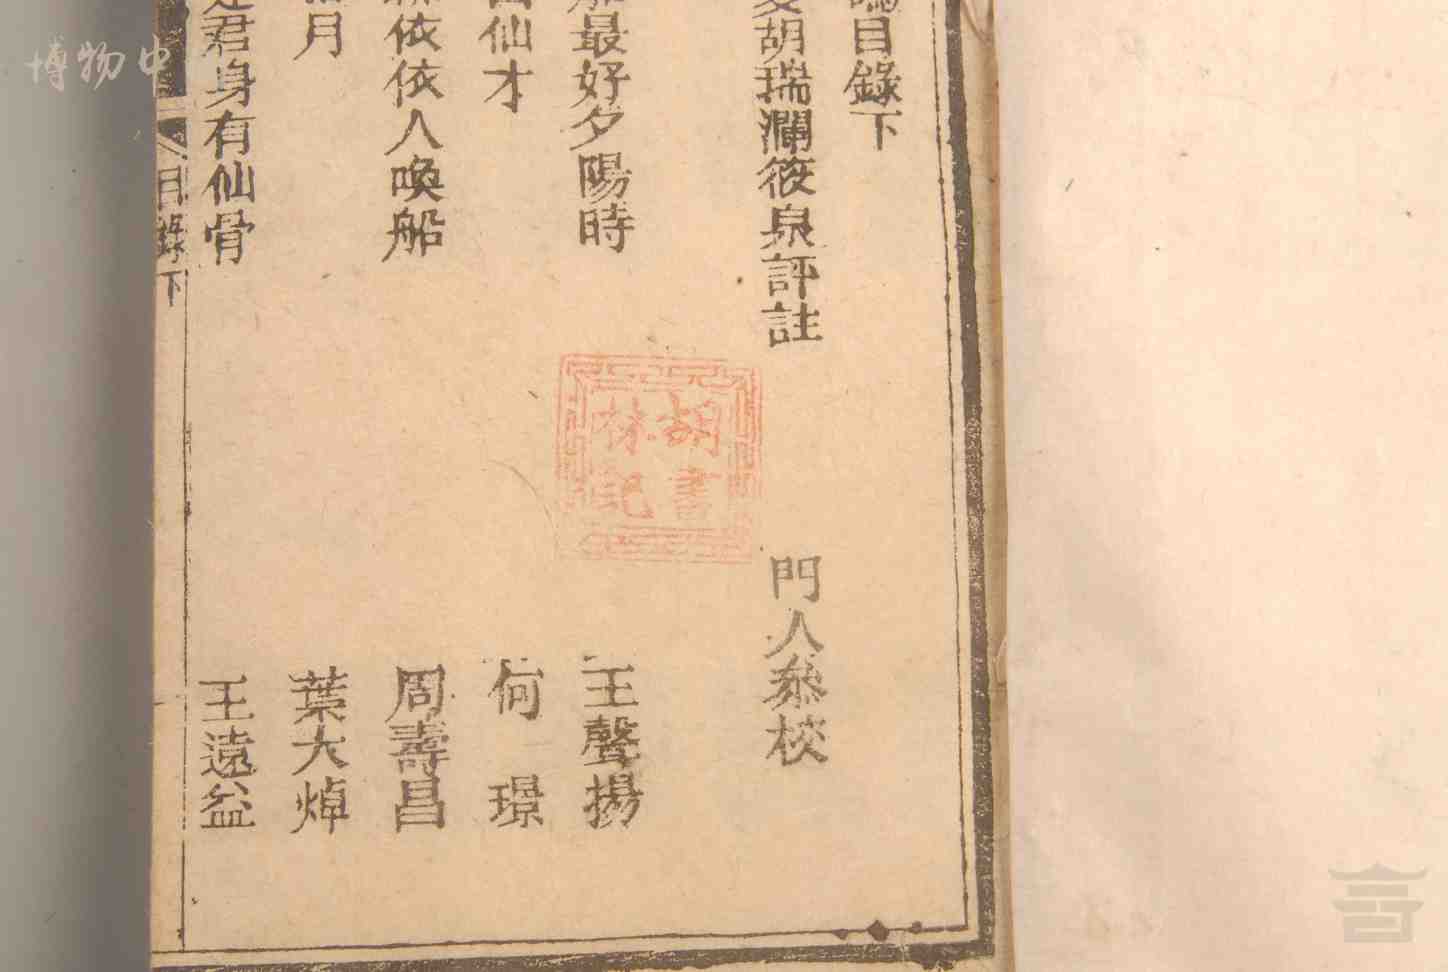 目錄下
胡瑞瀾筱泉評註
門人叅校
最好夕陽時
王聲揚
仙才
何璟
依依人喚船
周壽昌
月
葉大焯
君身有仙骨
王遠益
目錄下
胡書
林記
博物中